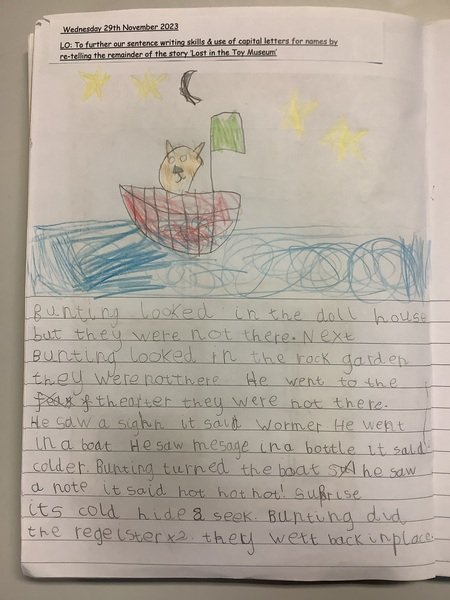 Wednesday 29th November 2023
LO: To further our sentence writing skills & use of capital letters for names by
re-telling the remainder of the story 'Lost in the Toy Museum'
Bunting looked in the doll house
but they were not there. Next
Bunting looked in the rock garden
they were not there He went to the
theatter they were not there.
He saw a sighn it said wormer He went
in a boat He saw mesage in a bottle it said
colder. Bunting turned the boat he saw
a note it said hot hot hot! suprise
its cold hide & seek. Bunting did
the regeister x2. they wett back in place.